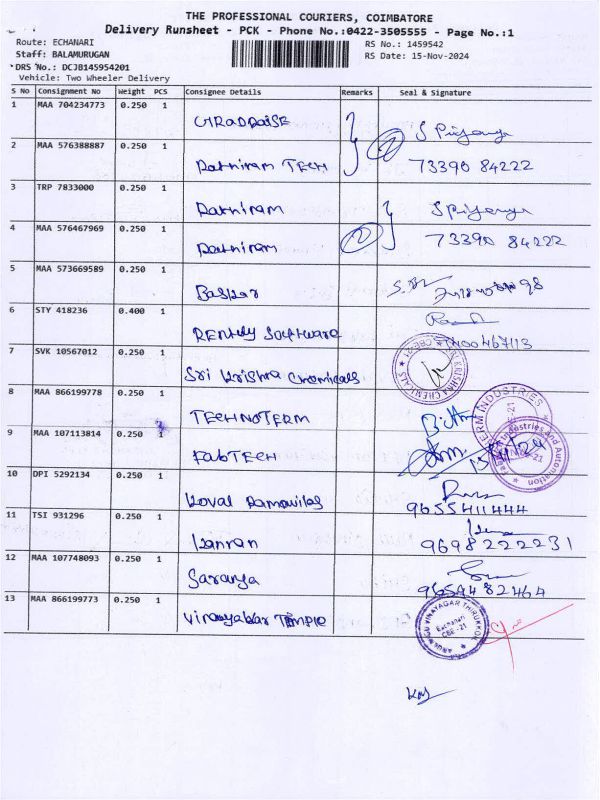 THE PROFESSIONAL COURIERS, COIMBATORE
Delivery Runsheet - PCK - Phone No.:0422-3505555 - Page No.:1
Route: ECHANARI RS No.: 1459542
Staff: BALAMURUGAN RS Date: 15-Nov-2024
DRS No.: DCJB145954201
Vehicle: Two Wheeler Delivery
S No Consignment No Weight PCS Consignee Details Remarks Seal & Signature
1 MAA 704234773 0.250 1
S Priyanga
2 MAA 576388887 0.250 1
Rathiram TECH 73390 84222
3 TRP 7833000 0.250 1
Rathiram S Priyanga
4 MAA 576467969 0.250 1
Rathiram 73390 84222
5 MAA 573669589 0.250 1
Baskar
6 STY 418236 0.400 1
Rently Software
7 SVK 10567012 0.250 1
Sri Krishna Chemicals
8 MAA 866199778 0.250 1
TECHNOTERM
9 MAA 107113814 0.250 1
FabTECH
10 DPI 5292134 0.250 1
Koval Ramavilas 9655411444
11 TSI 931296 0.250 1
Kannan 9698222231
12 MAA 107748093 0.250 1
Saranya 9659482464
13 MAA 866199773 0.250 1
Vinayakar Temple